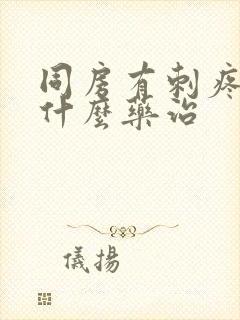 同房有刺疼
什麼藥治
儀揚